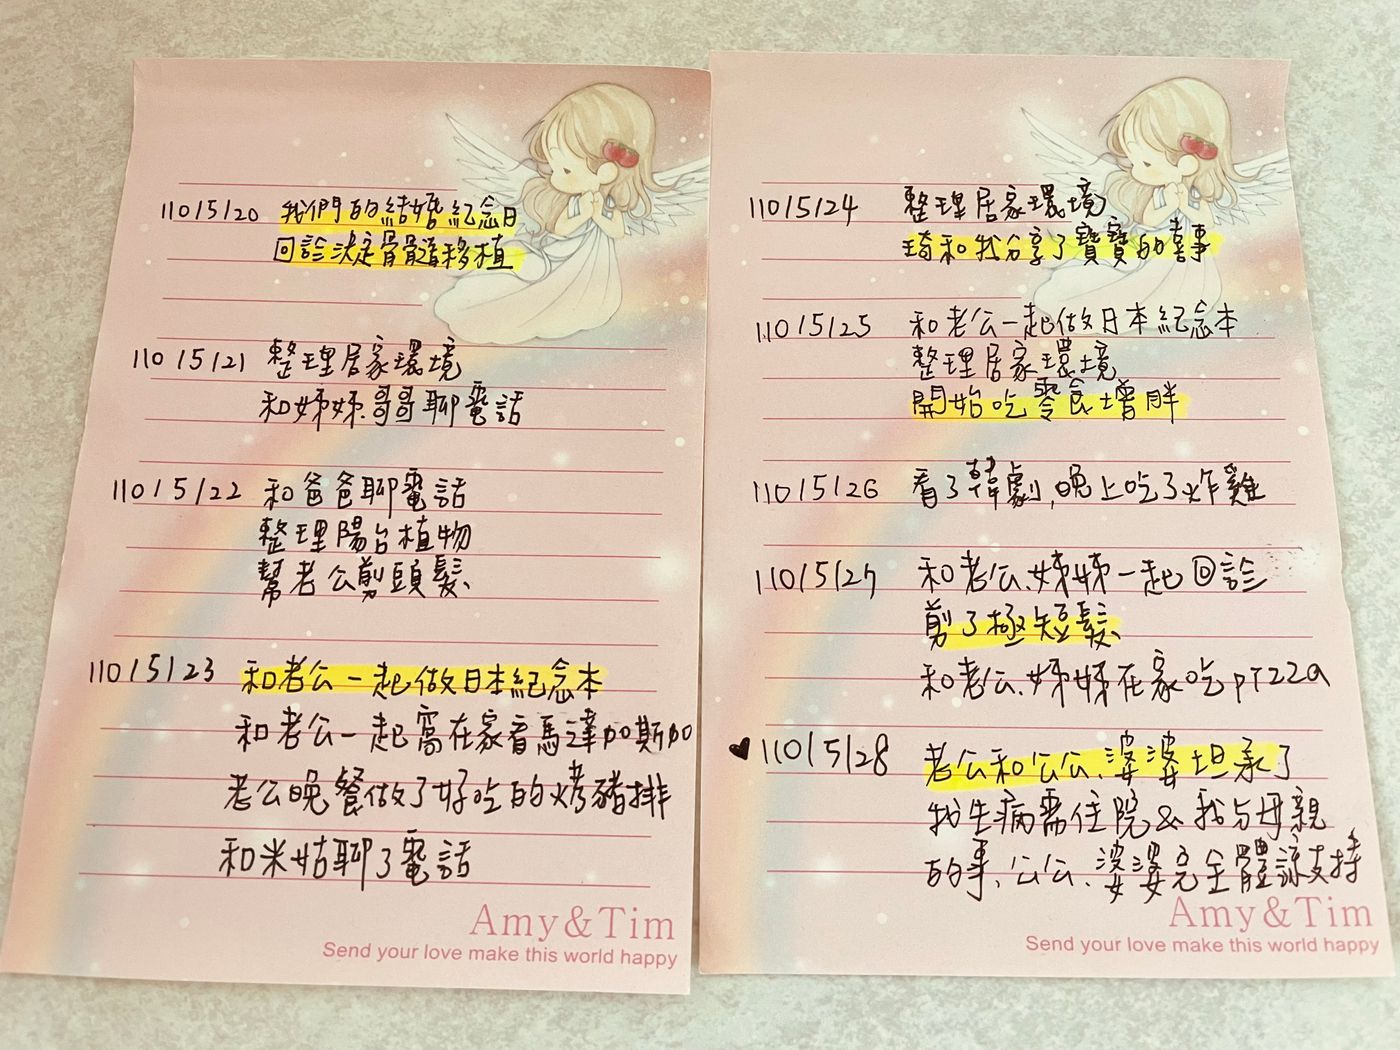 110/5/20 我們的結婚紀念日
回診決定骨髓移植
110/5/21 整理居家環境
和姊姊.哥哥聊電話
110/5/22 和爸爸聊電話
整理陽台植物
幫老公剪頭髮
110/5/23 和老公一起做日本紀念本
和老公一起窩在家看馬達加斯加
老公晚餐做了好吃的烤豬排
和米姑聊了電話
Amy&Tim
Send your love make this world happy
110/5/24 整理居家環境
琦和我分享了寶寶的喜事
110/5/25 和老公一起做日本紀念本
整理居家環境
開始吃零食增胖
110/5/26 看了韓劇,晚上吃了炸雞
110/5/27 和老公、姊姊一起回診
剪了極短髮
和老公、姊姊在家吃pizza
♥110/5/28 老公和公公、婆婆坦承了
我生病需住院&我与母親
的事、公公、婆婆完全體諒支持
Amy&Tim
Send your love make this world happy